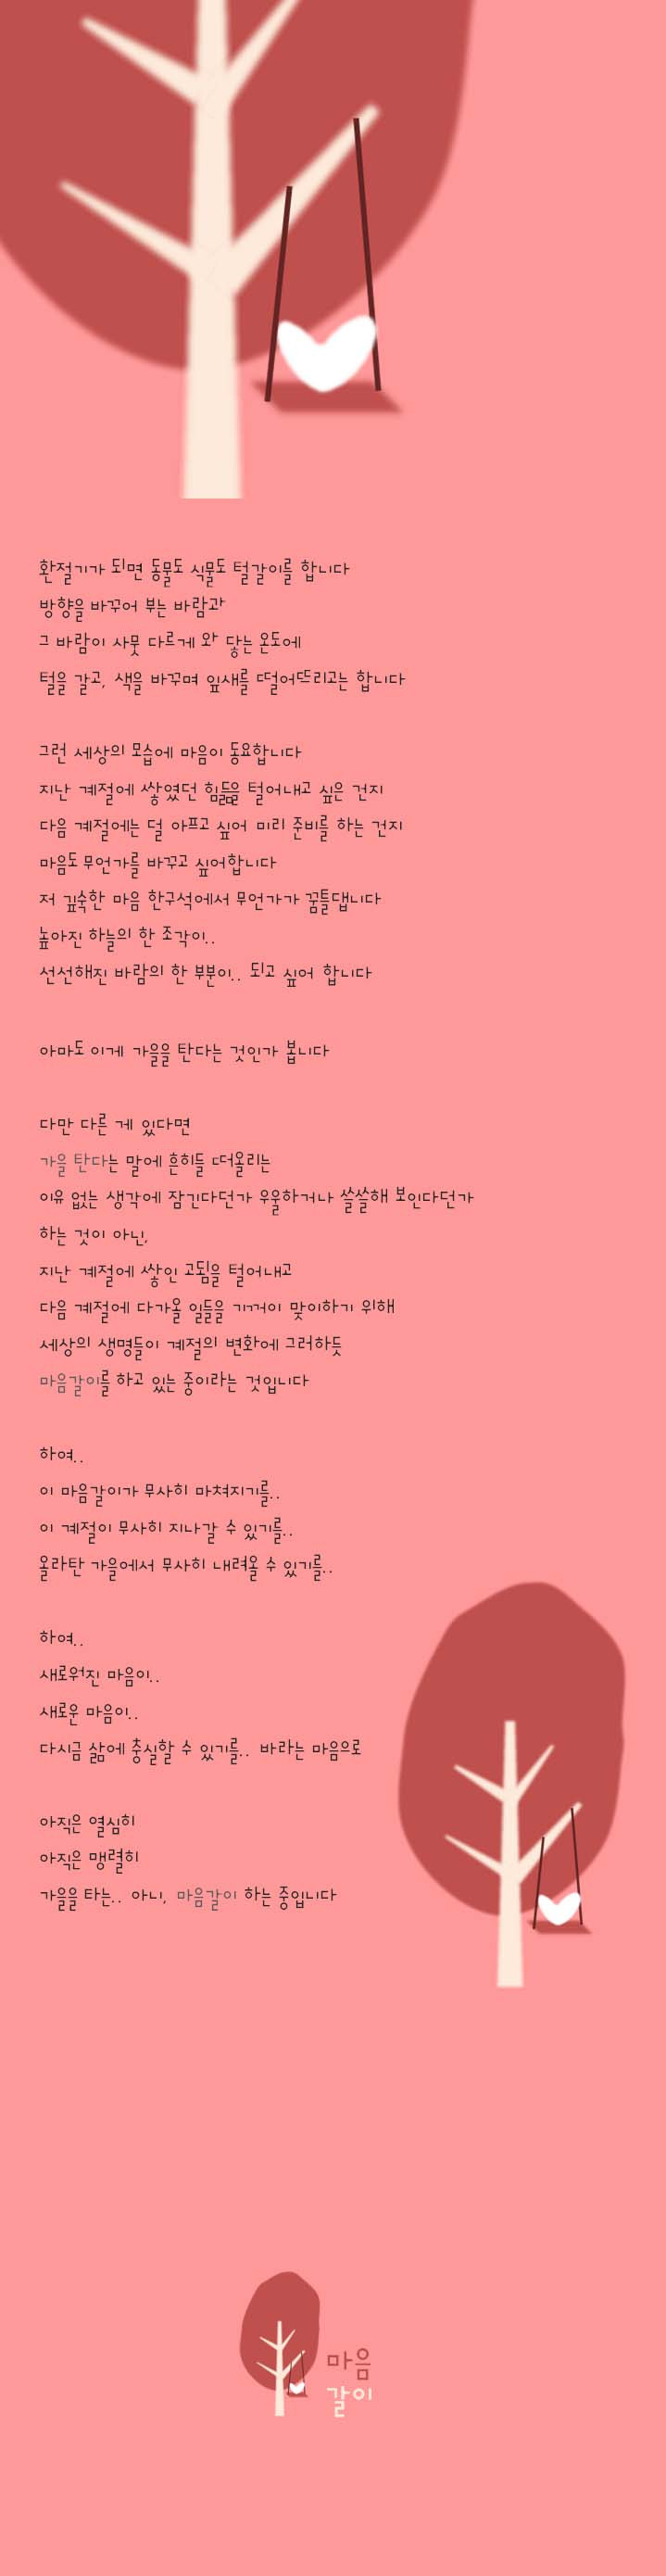 환절기가 되면 동물도 식물도 털갈이를 합니다
방향을 바꾸어 부는 바람과
그 바람이 사뭇 다르게 와 닿는 온도에
털을 갈고, 색을 바꾸며 잎새를 떨어뜨리고는 합니다
그런 세상의 모습에 마음이 동요합니다
지난 계절에 쌓였던 힘듦을 털어내고 싶은 건지
다음 계절에는 덜 아프고 싶어 미리 준비를 하는 건지
마음도 무언가를 바꾸고 싶어합니다
저 깊숙한 마음 한구석에서 무언가가 꿈틀댑니다
높아진 하늘의 한 조각이..
선선해진 바람의 한 부분이.. 되고 싶어 합니다
아마도 이게 가을을 탄다는 것인가 봅니다
다만 다른 게 있다면
가을 탄다는 말에 흔히들 떠올리는
이유 없는 생각에 잠긴다던가 우울하거나 쓸쓸해 보인다던가
하는 것이 아닌,
지난 계절에 쌓인 고됨을 털어내고
다음 계절에 다가올 일들을 기꺼이 맞이하기 위해
세상의 생명들이 계절의 변화에 그러하듯
마음갈이를 하고 있는 중이라는 것입니다
하여..
이 마음갈이가 무사히 마쳐지기를..
이 계절이 무사히 지나갈 수 있기를..
올라탄 가을에서 무사히 내려올 수 있기를..
하여..
새로워진 마음이..
새로운 마음이..
다시금 삶에 충실할 수 있기를.. 바라는 마음으로
아직은 열심히
아직은 맹렬히
가을을 타는.. 아니, 마음갈이 하는 중입니다
마음
갈이